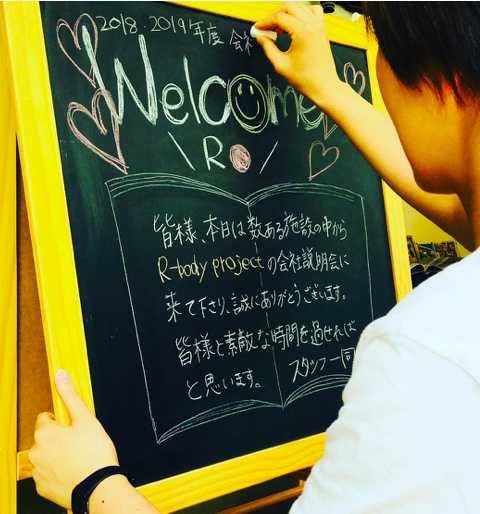 2018.2019年度 会社
Welcome
\ R● /
皆様、本日は数ある施設の中から
R-body projectの会社説明会に
来て下さり、誠にありがとうございます。
皆様と素敵な時間を過せれば
と思います。 スタッフ一同